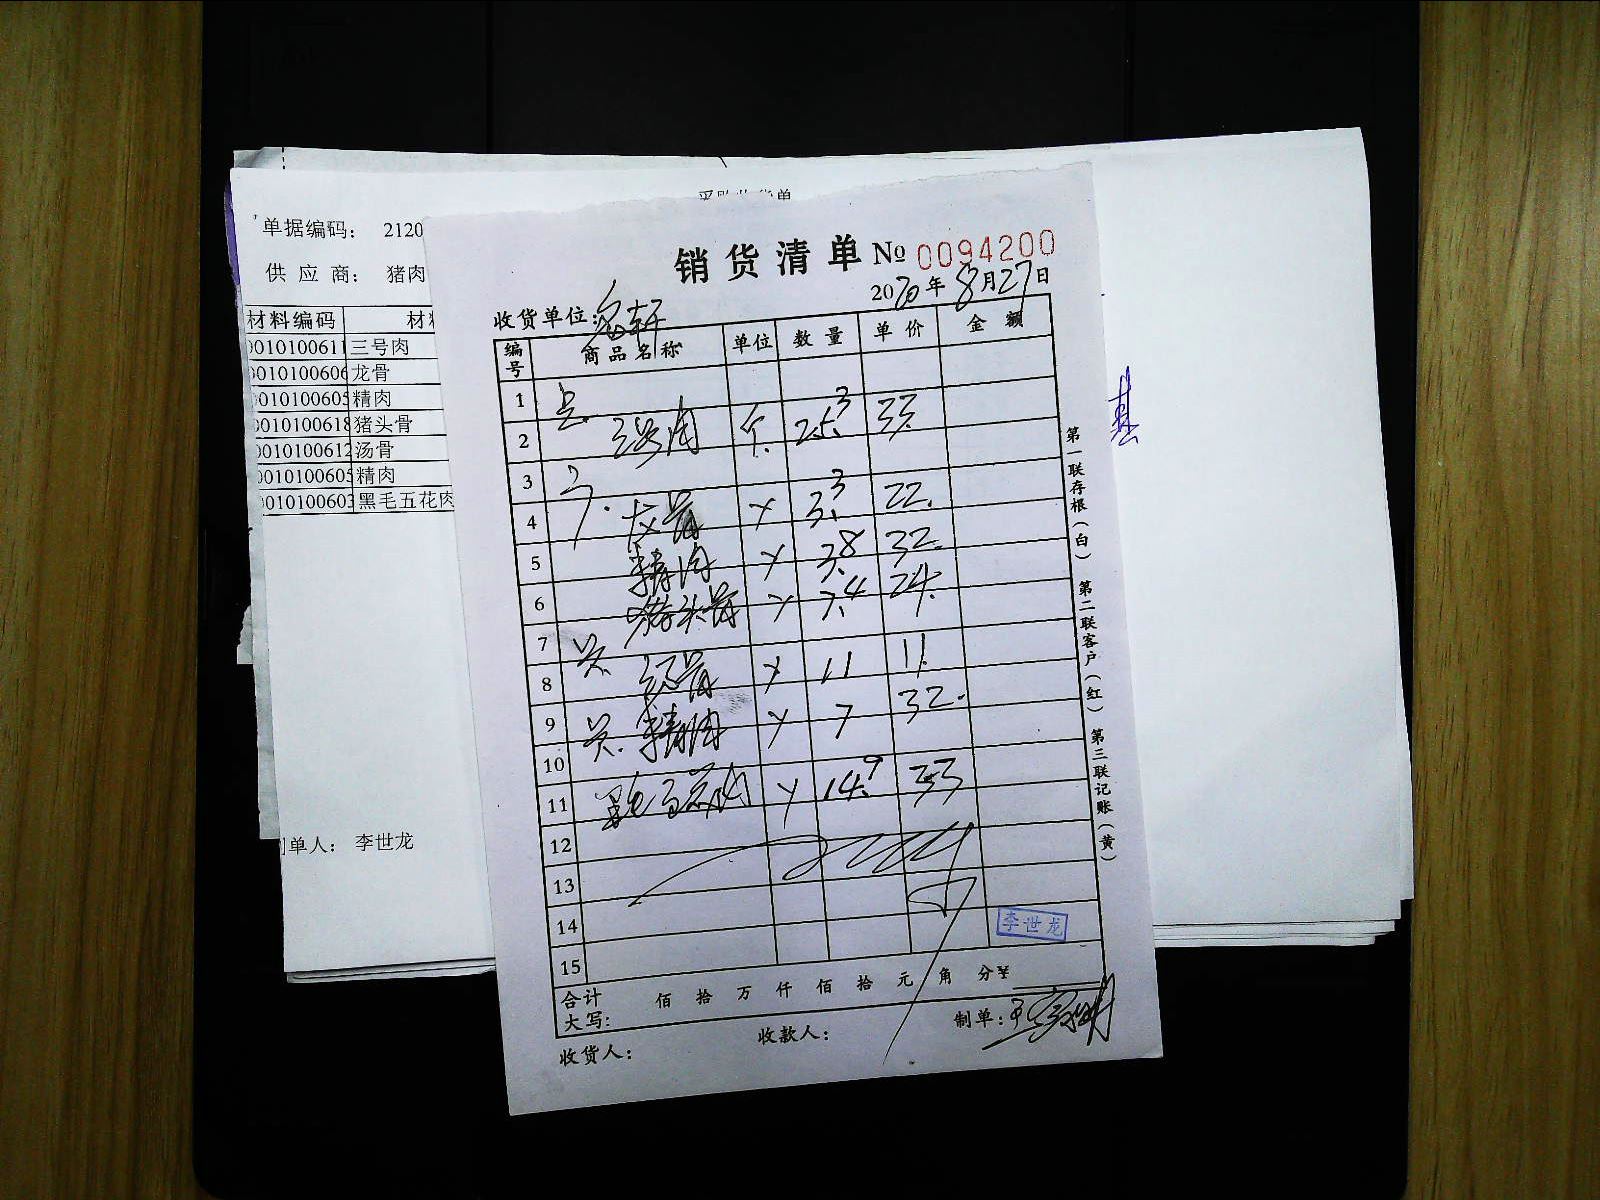 采购收货单
单据编码： 2120
供 应 商： 猪肉
材料编码 材料
0010100611 三号肉
0010100606 龙骨
0010100605 精肉
0010100618 猪头骨
0010100612 汤骨
0010100605 精肉
0010100603 黑毛五花肉
制单人： 李世龙
销货清单 № 0094200
2020年8月27日
收货单位：
编号 商品名称 单位 数量 单价 金额
1
2 三号肉 斤 25.3 33.
3
4 龙骨 〃 3.3 22.
5 精肉 〃 3.8 32.
6 猪头骨 〃 7.4 24.
7
8 汤骨 〃 11 11.
9
10 精肉 〃 7 32.
11 黑毛五花肉 〃 14.9 33
12
13
14
15
李世龙
合计大写： 佰 拾 万 仟 佰 拾 元 角 分¥
收货人： 收款人： 制单：
第一联存根（白） 第二联客户（红） 第三联记账（黄）